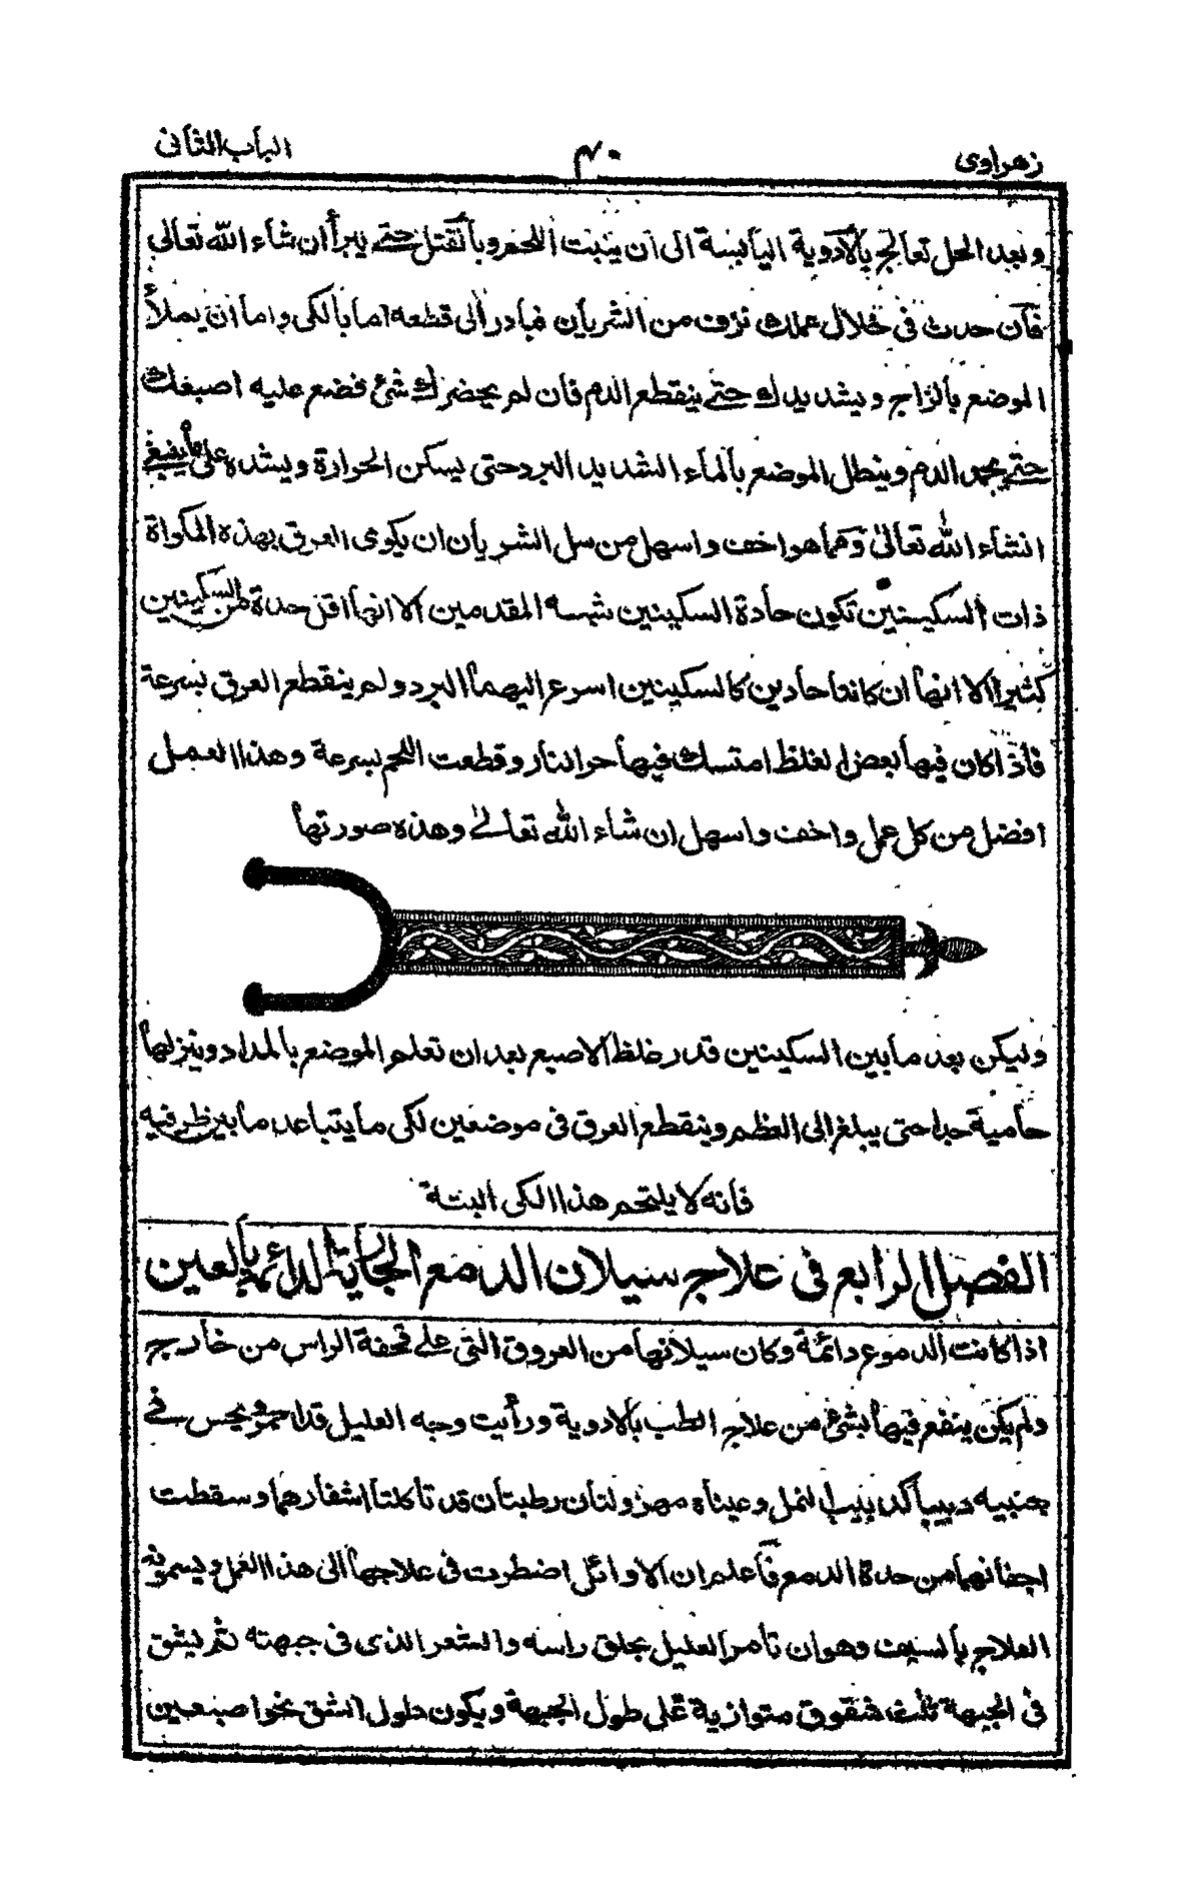 زهراوي
٤٠
الباب الثاني
وبعد الحل تعالج بالادوية اليابسة الى ان ينبت اللحم وبالفتل حتى يبرأ ان شاء الله تعالى
فان حدث فى خلال عملك نزف من الشريان فبادر الى قطعه اما بالكى واما ان يملأ
الموضع بالزاج ويشد يدك حتى ينقطع الدم فان لم يحضرك شئ فضع عليه اصبعك
حتى يجمد الدم وينطل الموضع بالماء الشديد البرد حتى يسكن الحرارة ويشده على ما ينبغى
انشاء الله تعالى ومما هو اخف واسهل من سل الشريان ان يكوى العرق بهذه المكواة
ذات السكينين تكون حادة السكينين شبه المقدمين الا انها اقل حدة من السكينين
كثيرا الا انها ان كانتا حادين كالسكينين اسرع اليهما البرد ولم ينقطع العرق بسرعة
فاذا كان فيها بعض الغلظ امتسك فيها حر النار وقطعت اللحم بسرعة وهذا العمل
افضل من كل عمل واخف واسهل ان شاء الله تعالى وهذه صورتها
وليكن بعد مابين السكينين قدر غلظ الاصبع بعد ان تعلم الموضع بالمداد وينزلها
حامية جدا حتى يبلغ الى العظم وينقطع العرق فى موضعين لكى ما يتباعد مابين طرفيه
فانه لا يلتحم هذا الكى البتة
الفصل الرابع فى علاج سيلان الدمع الجارية الدائمة بالعين
اذا كانت الدموع دائمة وكان سيلانها من العروق التى على قحفة الراس من خارج
ولم يكن ينفع فيها بشئ من علاج الطب بالادوية ورأيت وجه العليل قد احمر ويحس فى
جنبيه دبيبا كدبيب النمل وعيناه مهزولتان رطبتان قد تاكلتا اشفارهما وسقطت
اجفانهما من حدة الدمع فاعلم ان الاوائل اضطرت فى علاجها الى هذا العمل ويسمونه
العلاج بالسيف وهو ان تامر العليل بحلق راسه والشعر الذى فى جبهته ثم ليشق
فى الجبهة ثلث شقوق متوازية على طول الجبهة ويكون طول الشق نحوا صبعين